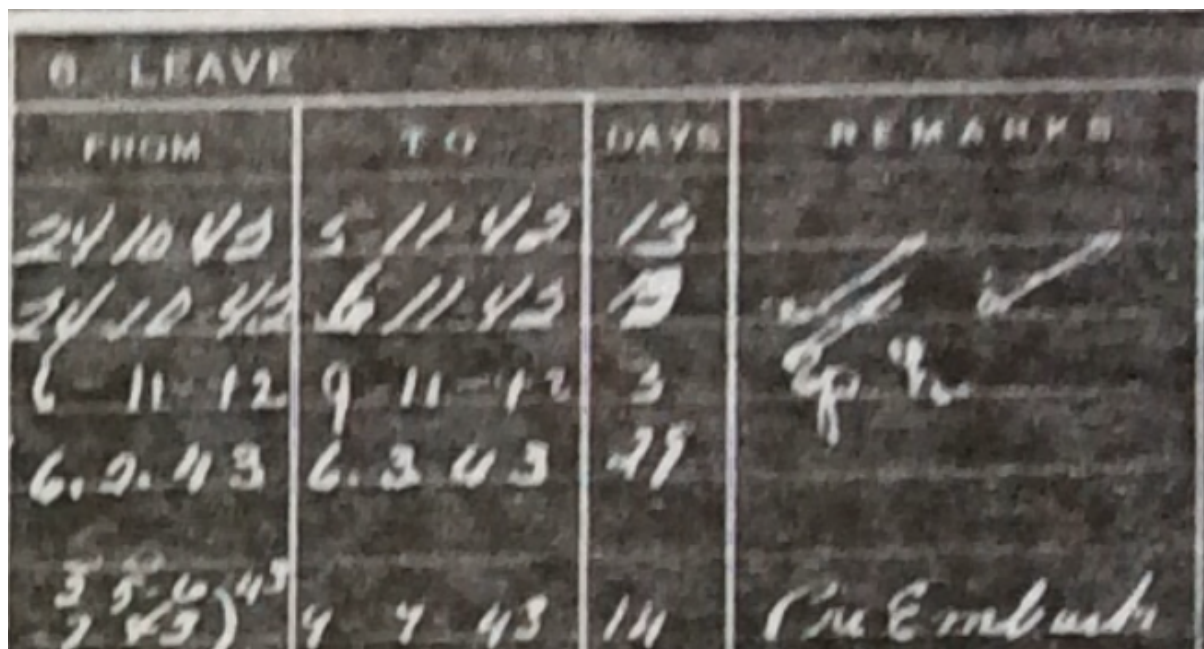 6 LEAVE
FROM TO DAYS REMARKS
24 10 42 5 11 42 13
24 10 42 6 11 42
6 11 42 9 11 42 3
6.2.43 6.3 43 29
43
43 14 Pre Embark